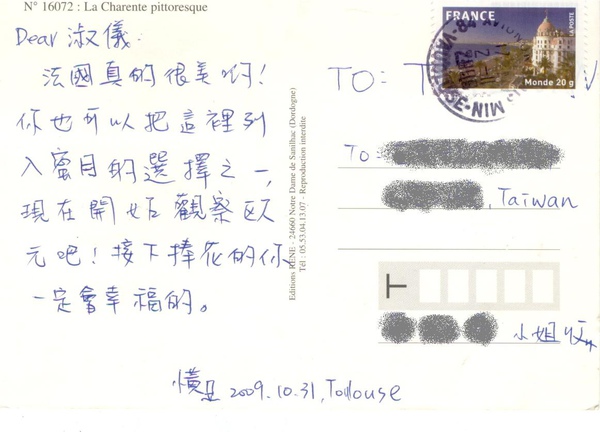 N° 16072 : La Charente pittoresque
Dear 淑儀:
法國真的很美啊!
你也可以把這裡列
入蜜月的選擇之一,
現在開始觀察歐
元吧!接下捧花的你
一定會幸福的。
2009.10.31, Toulouse
Editions RENE - 24660 Notre Dame de Sanilhac (Dordogne)
Tél : 05.53.04.13.07 - Reproduction interdite
FRANCE
LA POSTE
Monde 20 g
TO: T
To:
, Taiwan
小姐收